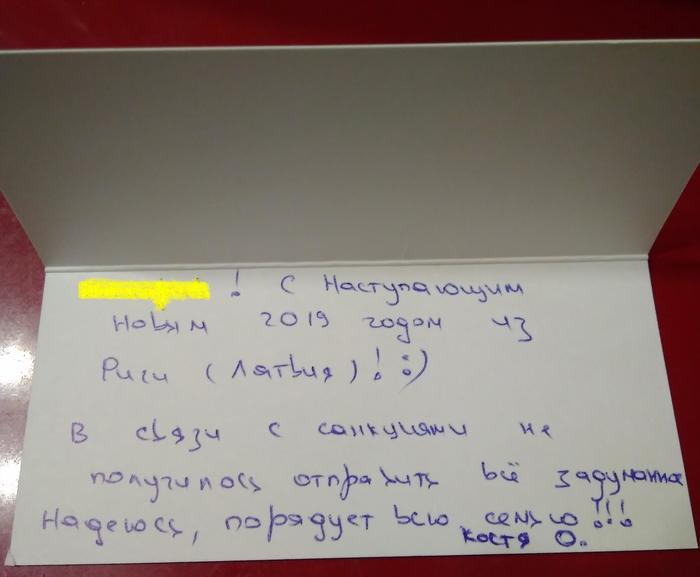 ! С Наступающим
Новым 2019 годом из
Риги (Латвия)! :)
В связи с санкциями не
получилось отправить всё задуманное
Надеюсь, порадует всю семью!!!
Костя О.